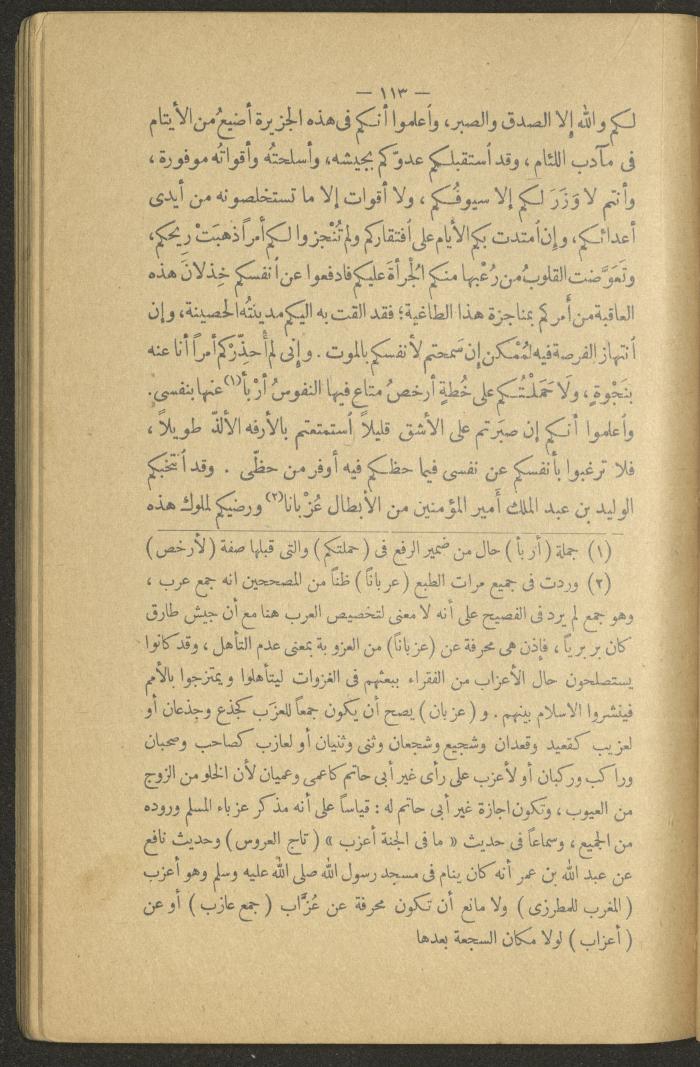 — ١١٣ —
لـكم والله إلا الصدق والصبر، وأعلموا أنـكم فى هذه الجزيرة أضيعُ من الأيتام
فى مآدب اللئام ، وقد أستقبلـكم عدوّكم بجيشه، وأسلحتُه وأقواتُه موفورة ،
وأنتم لا وَزَرَ لـكم إلا سيوفُـكم ، ولا أقوات إلا ما تستخلصونه من أيدى
أعدائـكم ، وإن أمتدت بكم الأيام على أفتقاركم ولم تُنْجزوا لـكم أمراً ذهبَتْ رِيحكم،
وتَعَوَّضت القلوبُ من رُعْبها منـكم الجُرأةَ عليكم فادفعوا عن أنفسكم خِذلانَ هذه
العاقبة من أَمركم بمناجزة هذا الطاغية؛ فقد القت به اليـكم مدينتُه الحصينة، وإن
أنتهاز الفرصة فيه لمُمْـكن إن سَمحتم لأنفسكم بالموت . وإنى لم أُحذِّرْكم أمراً أنا عنه
بنَجْوةٍ ، ولَا حَمَلـتُـكم على خُطةٍ أرخصُ متاع فيها النفوسُ أرْبأ(١) عنها بنفسى.
وأعلموا أنـكم إن صبَرتم على الأشق قليلاً أستمتعتم بالأرفه الألذّ طويلاً ،
فلا ترغبوا بأنفسكم عن نفسى فيما حظـكم فيه أوفر من حظّى . وقد أنتخبكم
الوليد بن عبد الملك أَمير المؤمنين من الأبطال عُزْبانا(٢) ورضيكم لملوك هذه
(١) جملة (أربأ) حال من ضمير الرفع فى (حملتكم) والتى قبلها صفة (لأرخص)
(٢) وردت فى جميع مرات الطبع (عرباناً) ظناً من المصححين انه جمع عرب ،
وهو جمع لم يرد فى الفصيح على أنه لا معنى لتخصيص العرب هنا مع أن جيش طارق
كان بربرياً ، فإذن هى محرفة عن (عزباناً) من العزوبة بمعنى عدم التأهل ، وقد كانوا
يستصلحون حال الأعزاب من الفقراء ببعثهم فى الغزوات ليتأهلوا ويمتزجوا بالأمم
فينشروا الاسلام بينهم . و (عزبان) يصح أن يكون جمعاً للعزَب كجذع وجذعان أو
لعزيب كقعيد وقعدان وشجيع وشجعان وثنى وثنيان أو لعازب كصاحب وصحبان
وراكب وركبان أو لأعزب على رأى غير أبى حاتم كاعمى وعميان لأن الخلو من الزوج
من العيوب ، وتكون اجازة غير أبى حاتم له : قياساً على أنه مذكر عزباء المسلم وروده
من الجميع ، وسماعاً فى حديث « ما فى الجنة أعزب » (تاج العروس) وحديث نافع
عن عبد الله بن عمر أنه كان ينام فى مسجد رسول الله صلى الله عليه وسلم وهو أعزب
(المغرب للمطرزى) ولا مانع أن تكون محرفة عن عُزَّاب (جمع عازب) أو عن
(أعزاب) لولا مكان السجعة بعدها